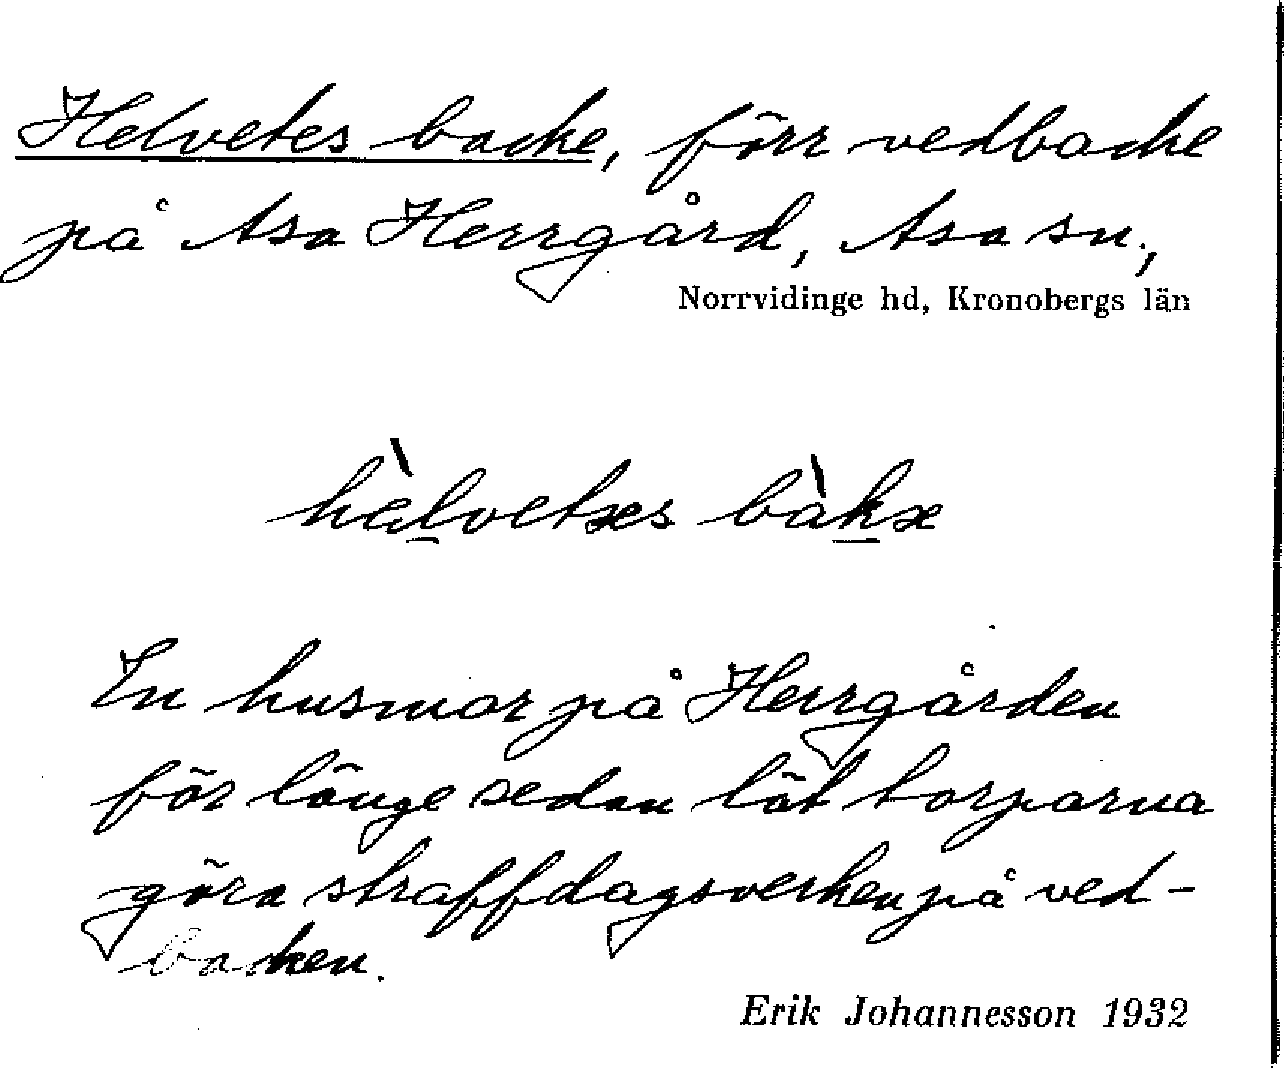 Helvetes backe, förr vedbacke
på Asa Herrgård, Asa sn.,
Norrvidinge hd, Kronobergs län
hàlvetæs bàkæ
En husmor på Herrgården
för länge sedan lät torparna
göra straffdagsverken på ved-
backen.
Erik Johannesson 1932